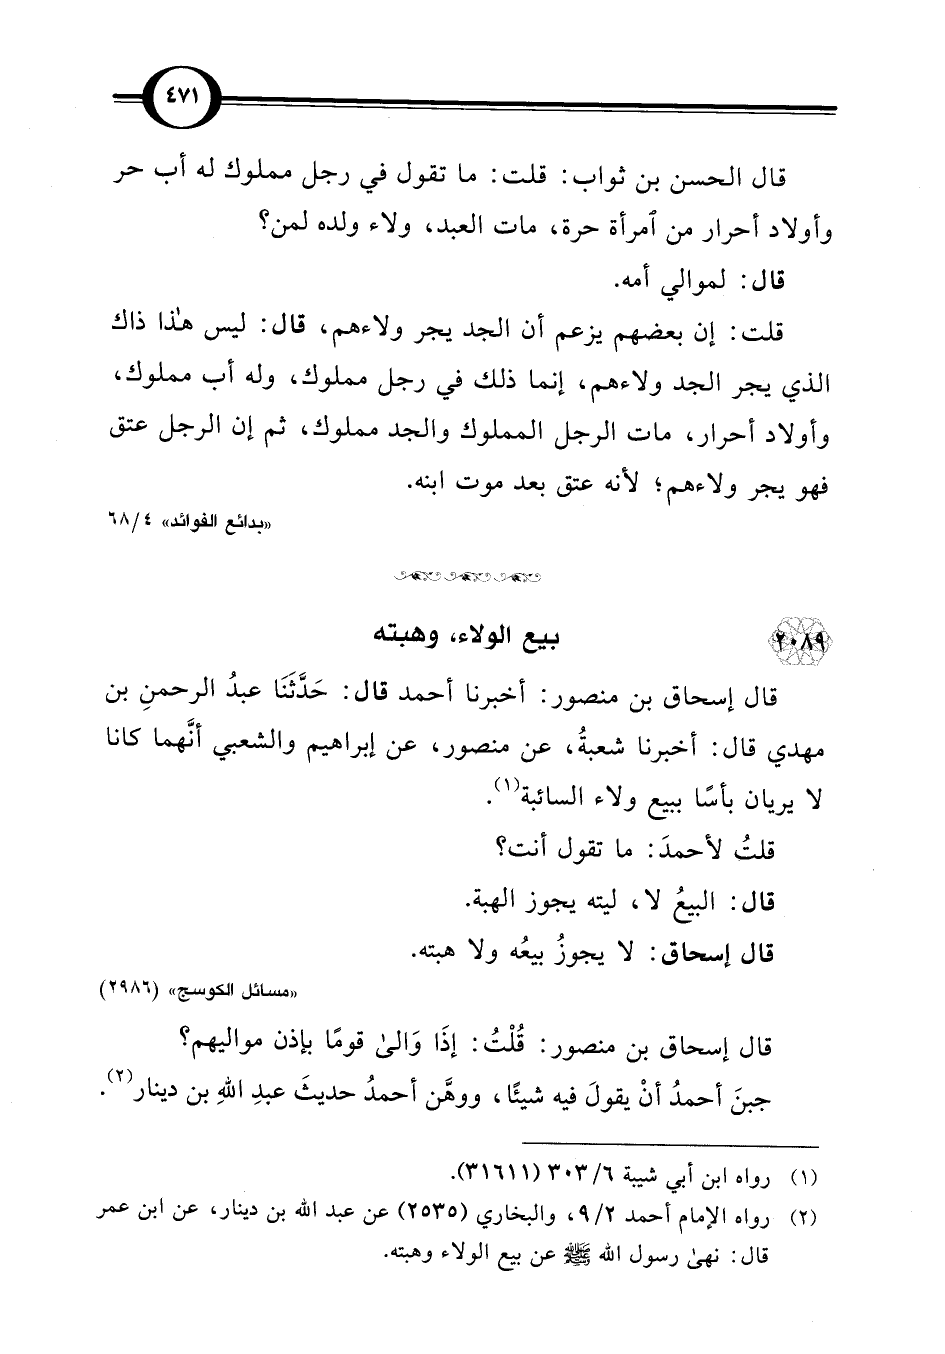 ٤٧١
قال الحسن بن ثواب: قلت: ما تقول في رجل مملوك له أب حر
وأولاد أحرار من ٱمرأة حرة، مات العبد، ولاء ولده لمن؟
قال: لموالي أمه.
قلت: إن بعضهم يزعم أن الجد يجر ولاءهم، قال: ليس هذا ذاك
الذي يجر الجد ولاءهم، إنما ذلك في رجل مملوك، وله أب مملوك،
وأولاد أحرار، مات الرجل المملوك والجد مملوك، ثم إن الرجل عتق
فهو يجر ولاءهم؛ لأنه عتق بعد موت ابنه.
«بدائع الفوائد» ٤/ ٦٨
٢٠٨٩ بيع الولاء، وهبته
قال إسحاق بن منصور: أخبرنا أحمد قال: حَدَّثَنَا عبدُ الرحمنِ بن
مهدي قال: أخبرنا شعبةُ، عن منصور، عن إبراهيم والشعبي أنَّهما كانا
لا يريان بأسًا ببيع ولاء السائبة(١).
قلتُ لأحمدَ: ما تقول أنت؟
قال: البيعُ لا، ليته يجوز الهبة.
قال إسحاق: لا يجوزُ بيعُه ولا هبته.
«مسائل الكوسج» (٢٩٨٦)
قال إسحاق بن منصور: قُلْتُ: إذَا وَالىٰ قومًا بإذن مواليهم؟
جبنَ أحمدُ أنْ يقولَ فيه شيئًا، ووهَّن أحمدُ حديثَ عبدِ اللهِ بن دينار(٢).
(١) رواه ابن أبي شيبة ٦/ ٣٠٣ (٣١٦١١).
(٢) رواه الإمام أحمد ٢/ ٩، والبخاري (٢٥٣٥) عن عبد الله بن دينار، عن ابن عمر
قال: نهىٰ رسول الله ﷺ عن بيع الولاء وهبته.